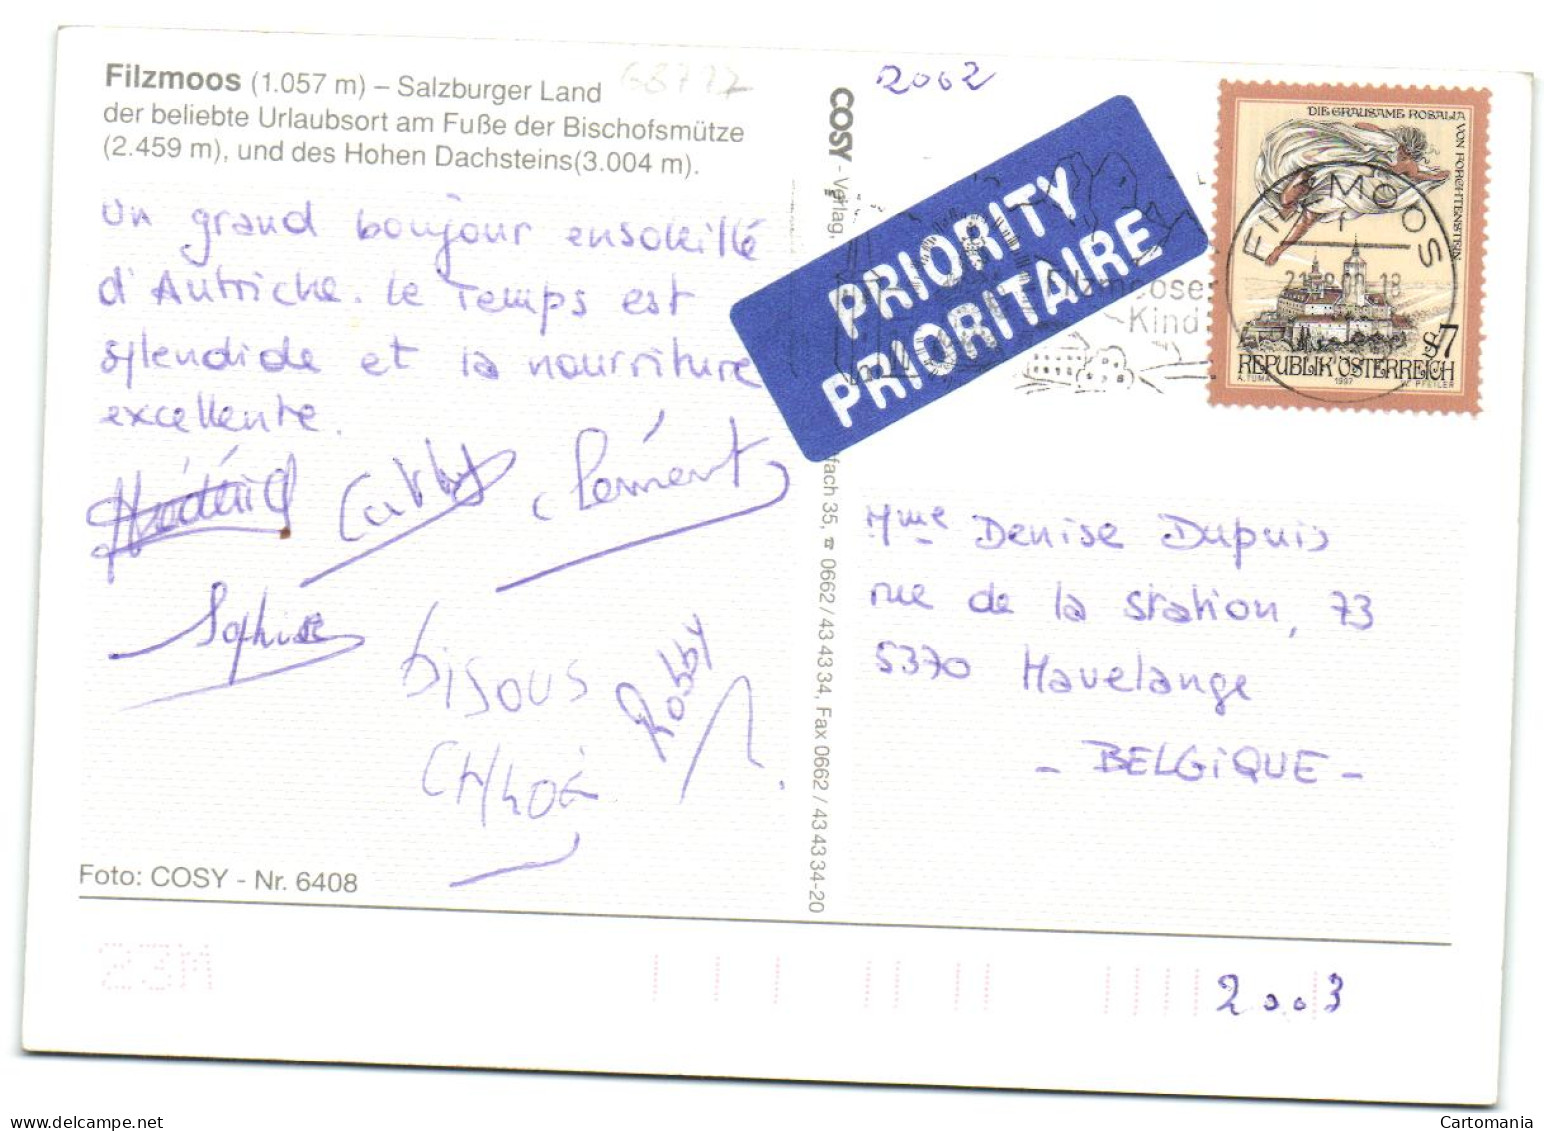 Filzmoos (1.057 m) – Salzburger Land
der beliebte Urlaubsort am Fuße der Bischofsmütze
(2.459 m), und des Hohen Dachsteins(3.004 m).
un grand bonjour ensoleillé
d'Autriche. Le Temps est
splendide et la nourriture
excellente.
Frédéric Cathy Clément
Sophie
BISOUS
CHLOÉ
Robby
Foto: COSY - Nr. 6408
COSY - Verlag, fach 35, ☎ 0662 / 43 43 34, Fax 0662 / 43 43 34-20
2002
PRIORITY
PRIORITAIRE
DIE GRAUSAME ROSALIA
VON FORCHTENSTEIN
FILZMOOS
S7
REPUBLIK ÖSTERREICH
A. TUMA 1997 W. PFEILER
Kind
Mme Denise Dupuis
rue de la station, 73
5370 Havelange
- BELGiQUE -
2003
delcampe.net
Cartomania